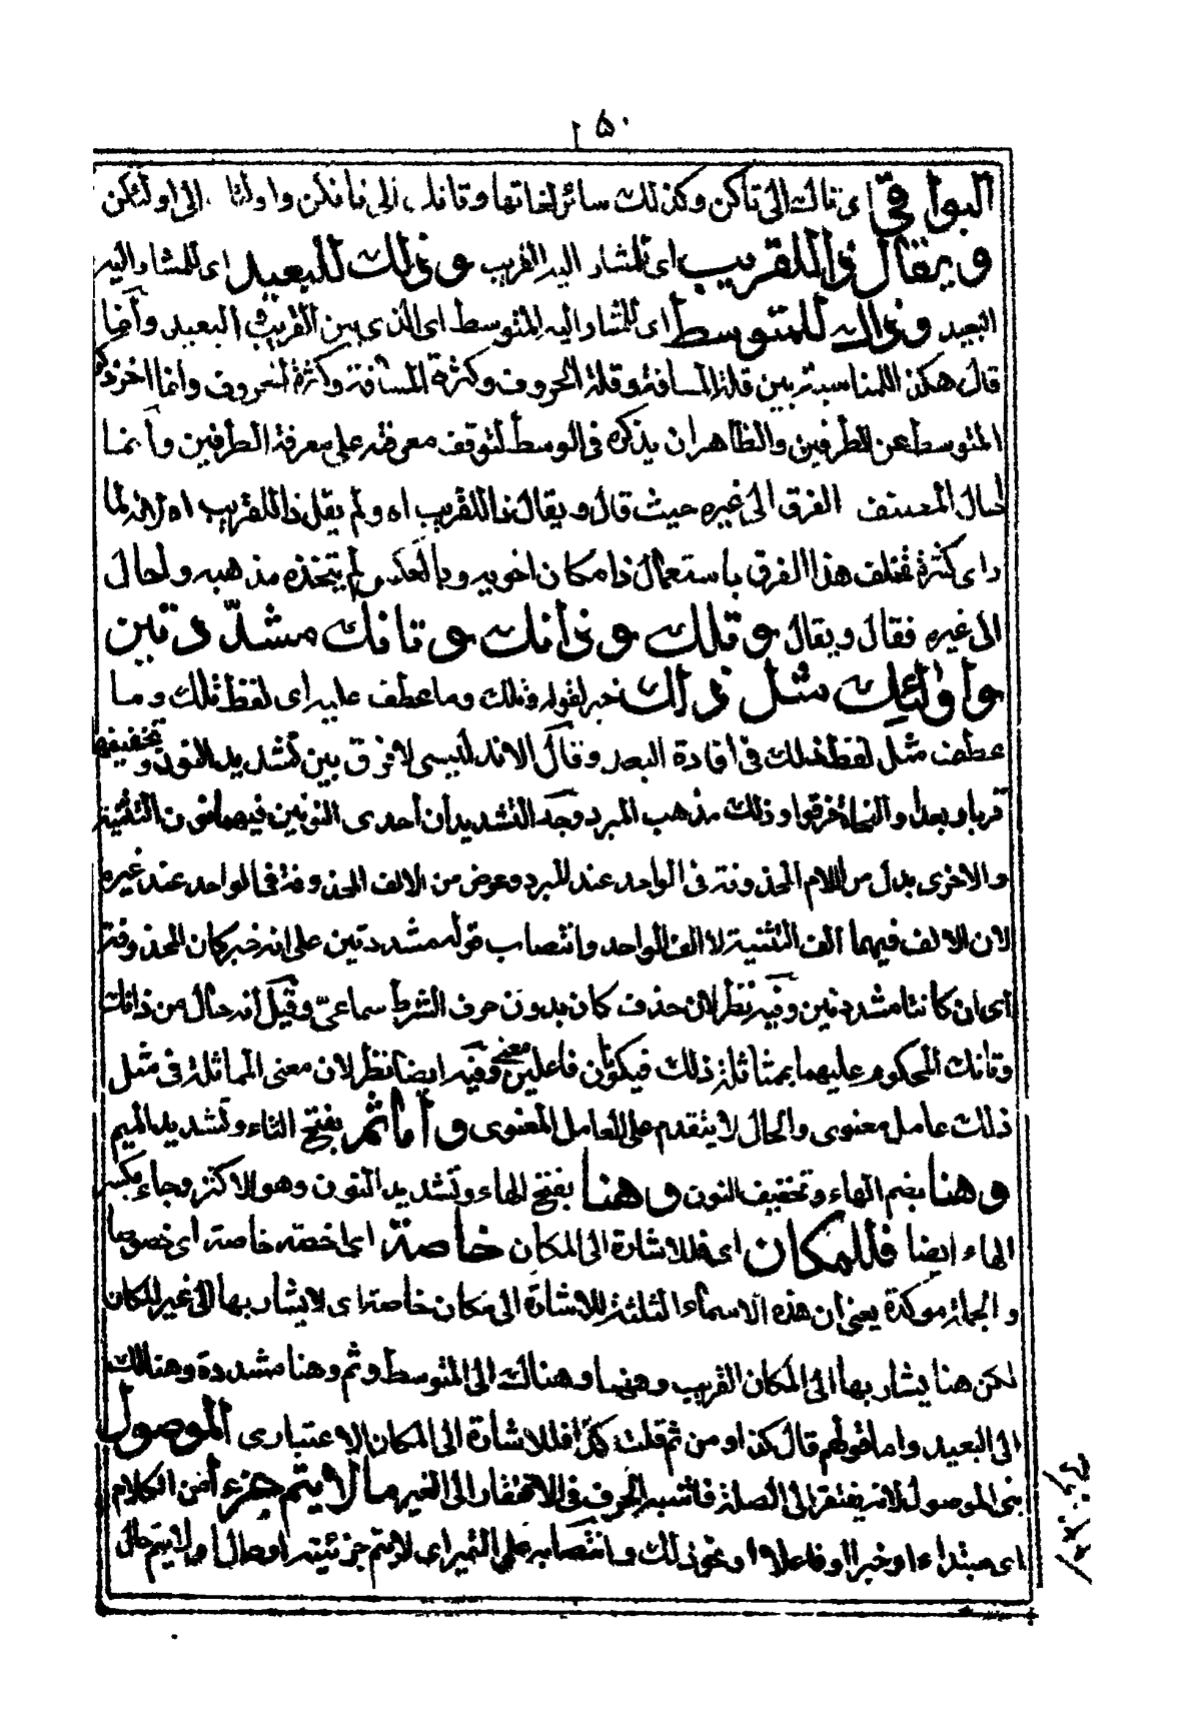 ۱۵۰
البواقی ای تاك الی تاكن وكذلك سائر لغاتها وتانك الی تانكن واولئك الی اولئكن
ويقال ذا للقريب ای للمشار اليه القريب وذلك للبعيد ای للمشار اليه
البعيد وذاك للمتوسط ای للمشار اليه المتوسط ای الذی بين القريب والبعيد وانما
قال هكذا للمناسبة بين قلة المسافة وقلة الحروف وكثرة المسافة وكثرة الحروف وانما اخر ذكر
المتوسط عن الطرفين والظاهر ان يذكره فی الوسط لتوقف معرفته علی معرفة الطرفين وانما
احال المصنف الفرق الی غيره حيث قال ويقال ذا للقريب اه ولم يقل ذا للقريب اه لانه لما
رای كثرة تخلف هذا الفرق باستعمال ذا مكان اخويه وبالعكس لم يتخذه مذهبه واحال
الی غيره فقال ويقال وتلك وذانك وتانك مشدّدتين
واولئك مثل ذلك خبر لقوله وتلك وما عطف عليه ای لفظ تلك وما
عطف مثل لفظ ذلك فی افادة البعد وقال الاندلسی لا فرق بين تشديد النون وتخفيفها
قربا وبعدا والنحاة فرقوا وذلك مذهب المبرد وجه التشديد ان احدی النونين فيهما نون التثنية
والاخری بدل من اللام المحذوفة فی الواحد عند المبرد وعوض من الالف المحذوفة فی الواحد عند غيره
لان الالف فيهما الف التثنية لا الف الواحد وانتصاب قوله مشددتين علی انه خبر كان المحذوفة
ای ان كانتا مشددتين وفيه نظر لان حذف كان بدون حرف الشرط سماعیّ وقيل انه حال من ذانك
وتانك المحكوم عليهما بمماثلة ذلك فيكونان فاعلين معنی وفيه ايضا نظر لان معنی المماثلة فی مثل
ذلك عامل معنوی والحال لا يتقدم علی العامل المعنوی واما ثم بفتح الثاء وتشديد الميم
وهنا بضم الهاء وتخفيف النون وهنا بفتح الهاء وتشديد النون وهو الاكثر وجاء بكسر
الهاء ايضا فللمكان ای فللاشارة الی المكان خاصة ای اخصه خاصة ای خصوصا
والجملة موكدة يعنی ان هذه الاسماء الثلثة للاشارة الی مكان خاصة ای لا يشار بها الی غير المكان
لكن هنا يشار بها الی المكان القريب وههنا وهناك الی المتوسط وثم وهنا مشددة وهنالك
الی البعيد واما قولهم قال كذا ومن ثم قلت كذا فللاشارة الی المكان الاعتباری الموصول
بنی الموصول لانه يفتقر الی الصلة فاشبه الحرف فی الافتقار الی الغير ما لا يتم جزءا من الكلام
ای مبتداء او خبرا او فاعلا او نحو ذلك وانتصابه علی التميز ای لا يتم جزئيته او حال ای لا يتم حال